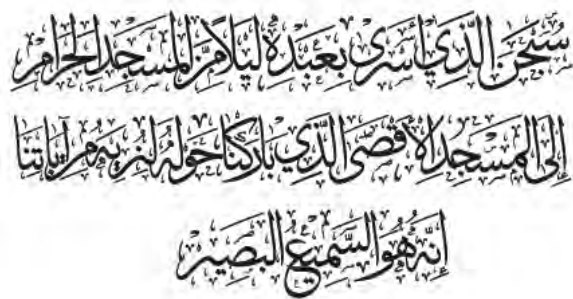 سُبْحٰنَ الَّذِي أَسْرَى بِعَبْدِهِ لَيْلًا مِّنَ الْمَسْجِدِ الْحَرَامِ
إِلَى الْمَسْجِدِ الْأَقْصَى الَّذِي بَارَكْنَا حَوْلَهُ لِنُرِيَهُ مِنْ آيَاتِنَا
إِنَّهُ هُوَ السَّمِيعُ الْبَصِيرُ